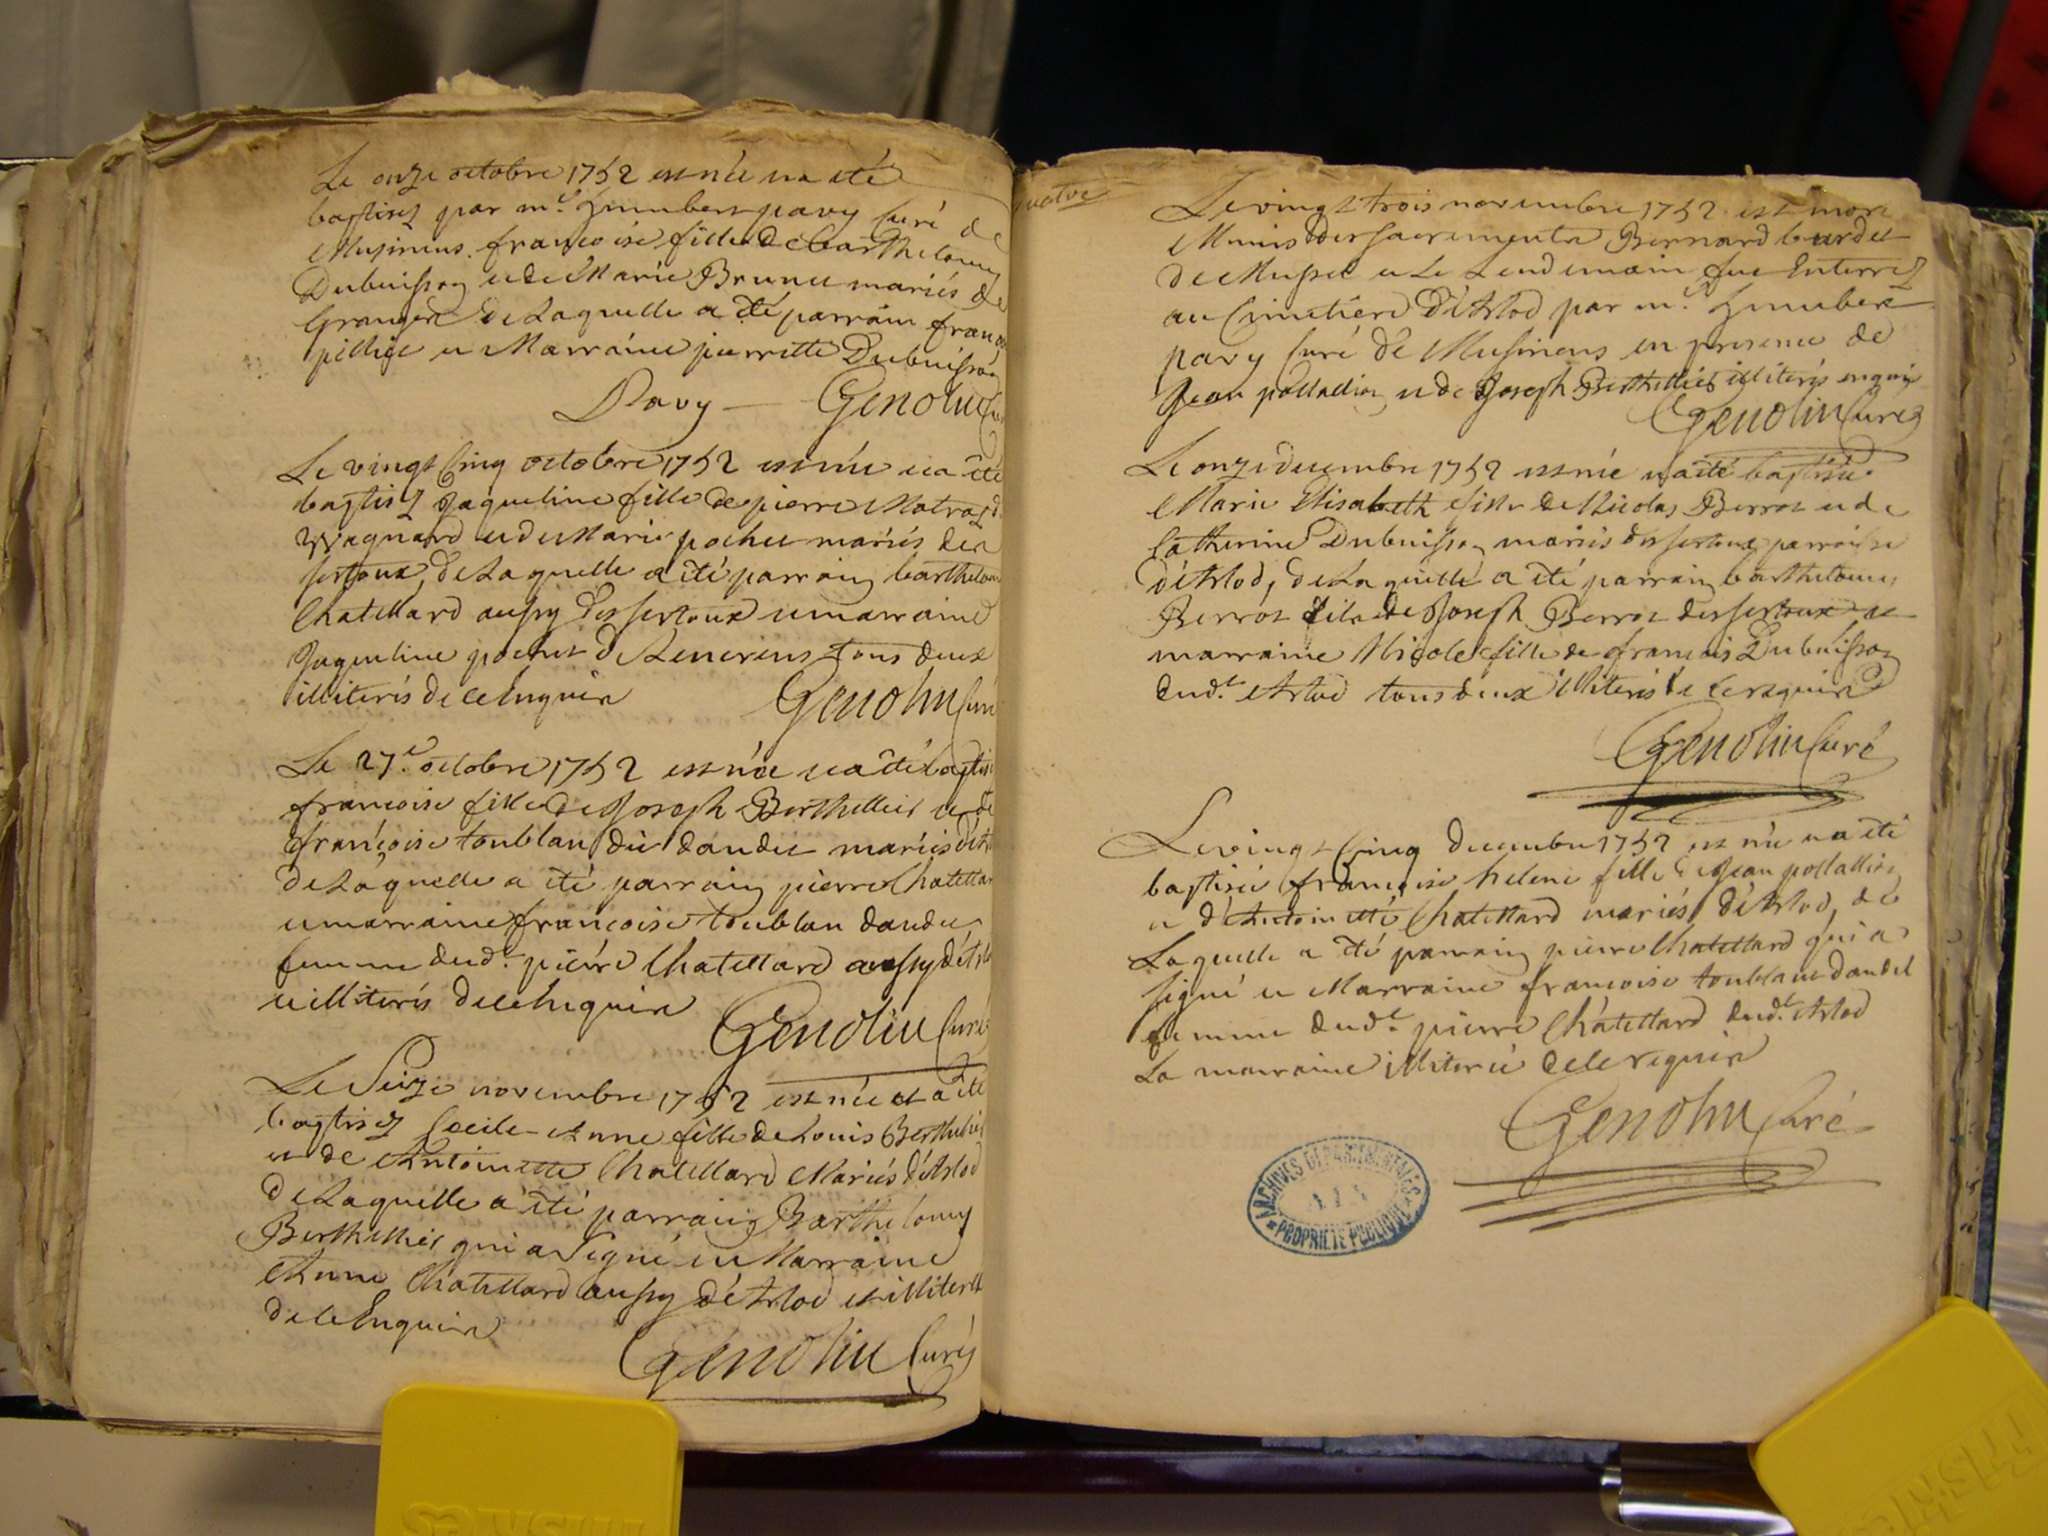 Le onze octobre 1752 est née et a été
baptisez par mr. humbert pavy Curé de
Musinens. francoise fille de barthelemy
Dubuisson et de Marie Brunet mariés de
de Laquelle a été parrain françois
et Marraine pierrette Dubuisson
Pavy Genolin Curé
Le vingt Cinq octobre 1752 est née et a été
baptisez Jaqueline fille de pierre Matraz dt
Wagnard et de Marie pochet mariés des
sertoux, de Laquelle a été parrain barthelemy
Chatellard aussy des sertoux et marraine
Jaqueline pochet de tous deux
illiterés de ce Enquis
Genolin Curé
Le 27e. octobre 1752 est née et a été baptisée
francoise fille de Joseph Berthellier et de
françoise toublan dit daudet mariés d'Arlod
de Laquelle a été parrain pierre Chatellard
et marraine francoise toublan daudet
femme dudt. pierre Chatellard aussy d'Arlod
et illiterés de ce Enquis
Genolin Curé
Le Seize novembre 1752 est née et a été
baptisez Cecile Anne fille de Louis Berthelier
et de Antoinette Chatellard Mariés d'Arlod
de Laquelle a été parrain Barthelemy
Berthellier qui a signé et Marraine
Anne Chatellard aussy d'Arlod et illiterée
de ce Enquise
Genolin Curéz
Le vingt trois novembre 1752 est mort
Muni des sacrements Bernard burdet
de Mussel et Le Lendemain fut Enterrez
au Cimetiere d'Arlod par mr. humbert
pavy Curé de Musinens en presence de
Jean pollallion et de Joseph Berthellier illiterés enquis
Genolin Curéz
Le onze decembre 1752 est née et a été baptisée
Marie Elisabeth fille de Nicolas Berrot et de
Catherine Dubuisson mariés des sertoux parroisse
d'Arlod, de Laquelle a été parrain barthelemy
Berrot fils de Joseph Berrot des sertoux et
marraine Nicole fille de francois Dubuisson
dudt. Arlod tous deux illiterés de ce requis
Genolin Curé
Le vingt Cinq decembre 1752 est née et a été
baptisée françoise helene fille de Jean pollallion
et d'Antoinette Chatellard mariés d'Arlod, de
Laquelle a été parrain pierre Chatellard qui a
signé et Marraine francoise toublant daudet
femme dudt. pierre Chatellard dudt. Arlod
La marraine illiterée de ce requise
Genolin Curé
ARCHIVES DEPARTEMENTALES
AIN
PROPRIETE PUBLIQUE